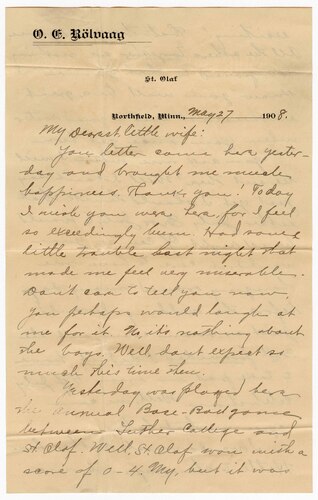 O. E. Rölvaag
St. Olaf
Northfield, Minn., May 27 1908.
My Dearest little wife:
You letter came here yester-
day and brought me much
happiness. Thank you! Today
I wish you were here, for I feel
so exceedingly bum. Had some
little trouble last night that
made me feel very miserable.
Don't care to tell you now.
You perhaps would laugh at
me for it. No, its nothing about
the boys. Well, dont expect so
much this time then.
Yesterday was played here
the annual Base-Ball game
between Luther College and
St. Olaf. Well, St. Olaf won with a
score of 0-4. My, but it was